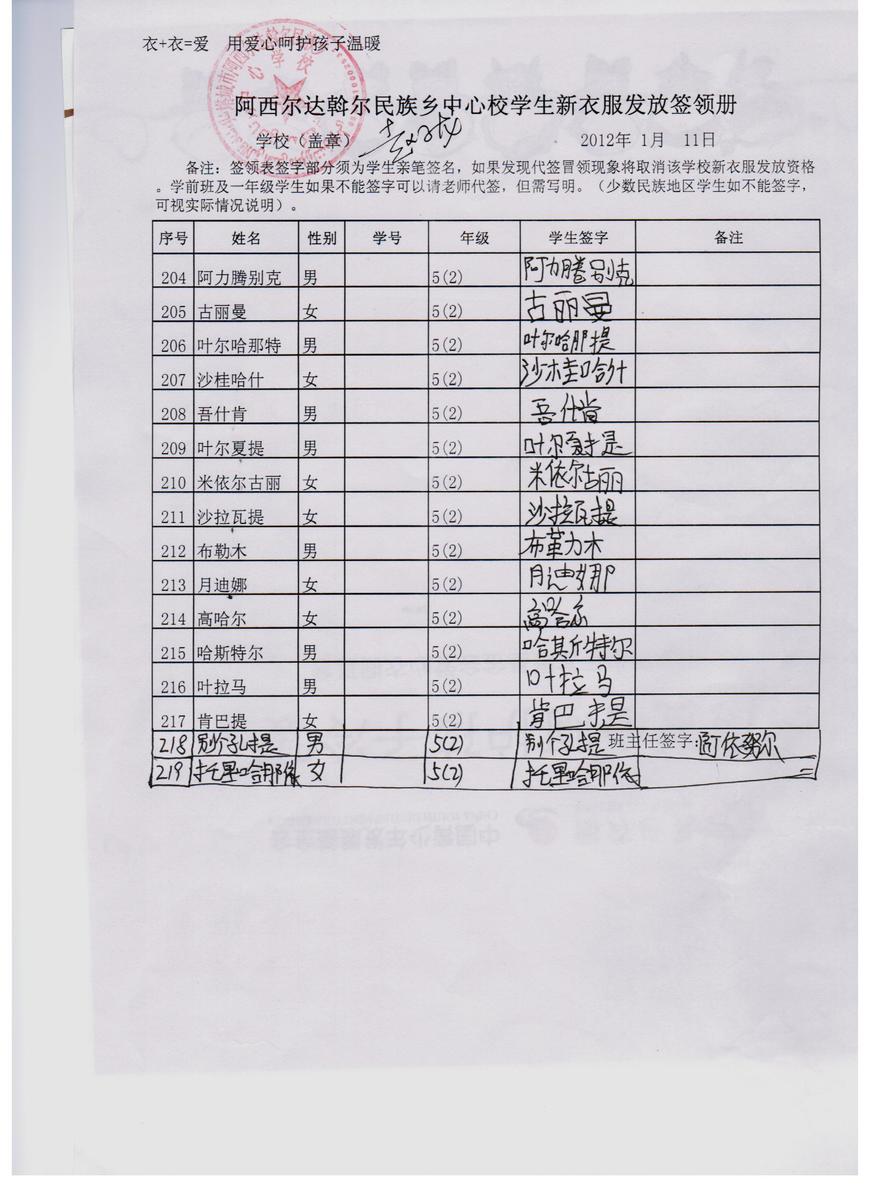 衣+衣=爱 用爱心呵护孩子温暖
阿西尔达斡尔民族乡中心校学生新衣服发放签领册
学校（盖章） 2012年 1月 11日
备注：签领表签字部分须为学生亲笔签名，如果发现代签冒领现象将取消该学校新衣服发放资格
。学前班及一年级学生如果不能签字可以请老师代签，但需写明。（少数民族地区学生如不能签字，
可视实际情况说明）。
序号 姓名 性别 学号 年级 学生签字 备注
204 阿力腾别克 男 5(2) 阿力腾别克
205 古丽曼 女 5(2) 古丽曼
206 叶尔哈那特 男 5(2) 叶尔哈那提
207 沙桂哈什 女 5(2) 沙桂哈什
208 吾什肯 男 5(2) 吾什肯
209 叶尔夏提 男 5(2) 叶尔夏提
210 米依尔古丽 女 5(2) 米依尔古丽
211 沙拉瓦提 女 5(2) 沙拉瓦提
212 布勒木 男 5(2) 布勒木
213 月迪娜 女 5(2) 月迪娜
214 高哈尔 女 5(2) 高哈尔
215 哈斯特尔 男 5(2) 哈斯特尔
216 叶拉马 男 5(2) 叶拉马
217 肯巴提 女 5(2) 肯巴提
218 别个孔提 男 5(2) 别个孔提 班主任签字:阿依努尔
219 托里哈那依 女 5(2) 托里哈那依